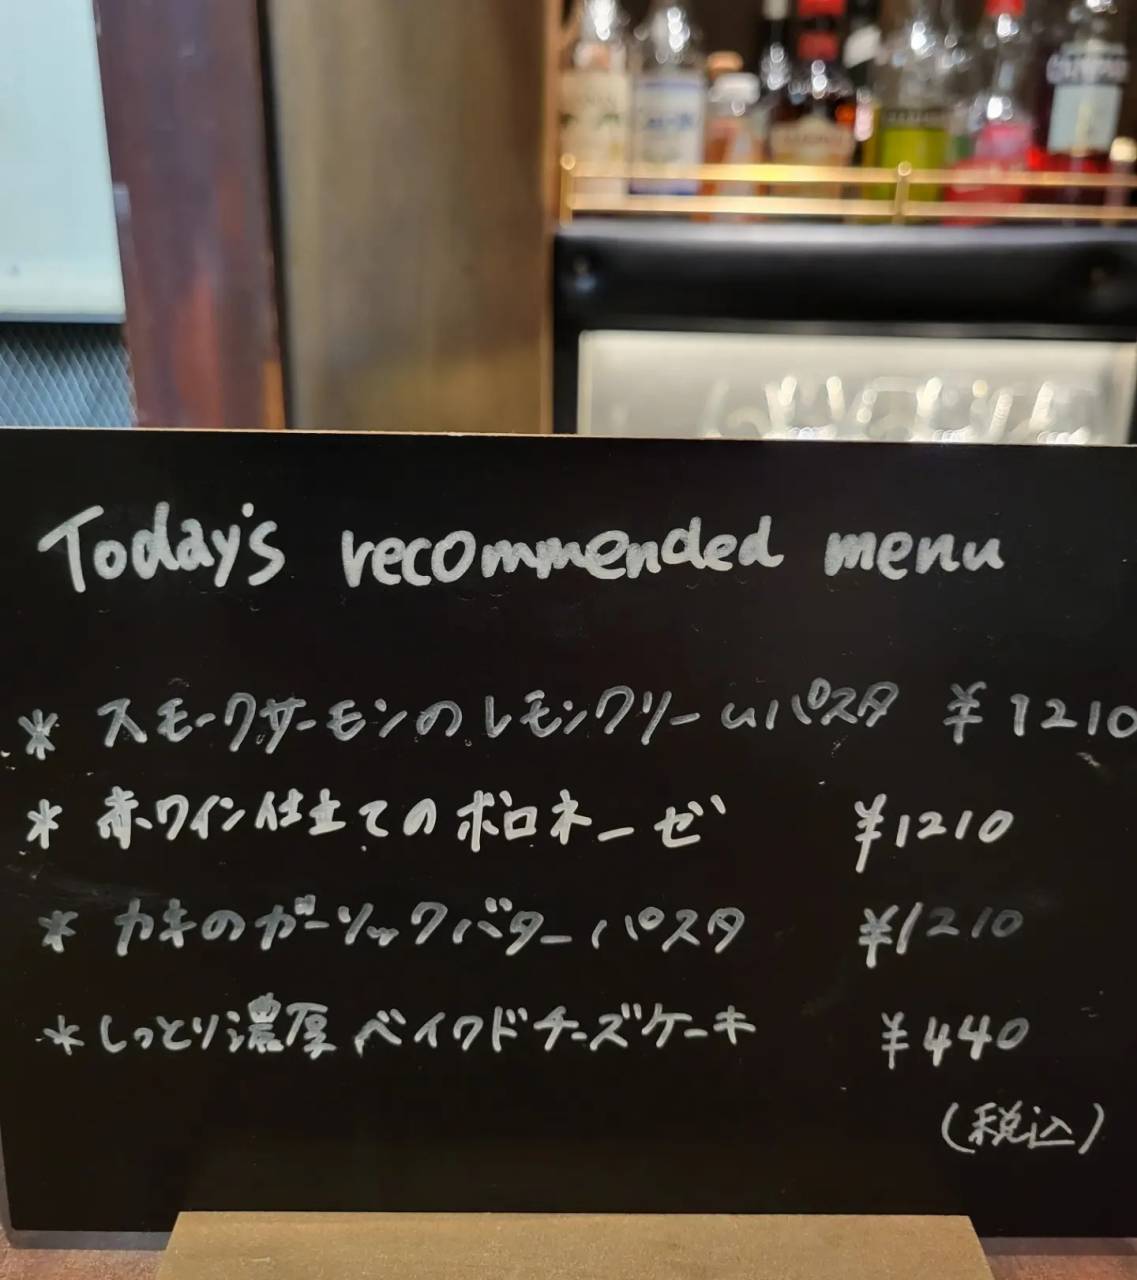 Today's recommended menu
* スモークサーモンのレモンクリームパスタ ¥1210
* 赤ワイン仕立てのボロネーゼ ¥1210
* カキのガーリックバターパスタ ¥1210
* しっとり濃厚ベイクドチーズケーキ ¥440
(税込)